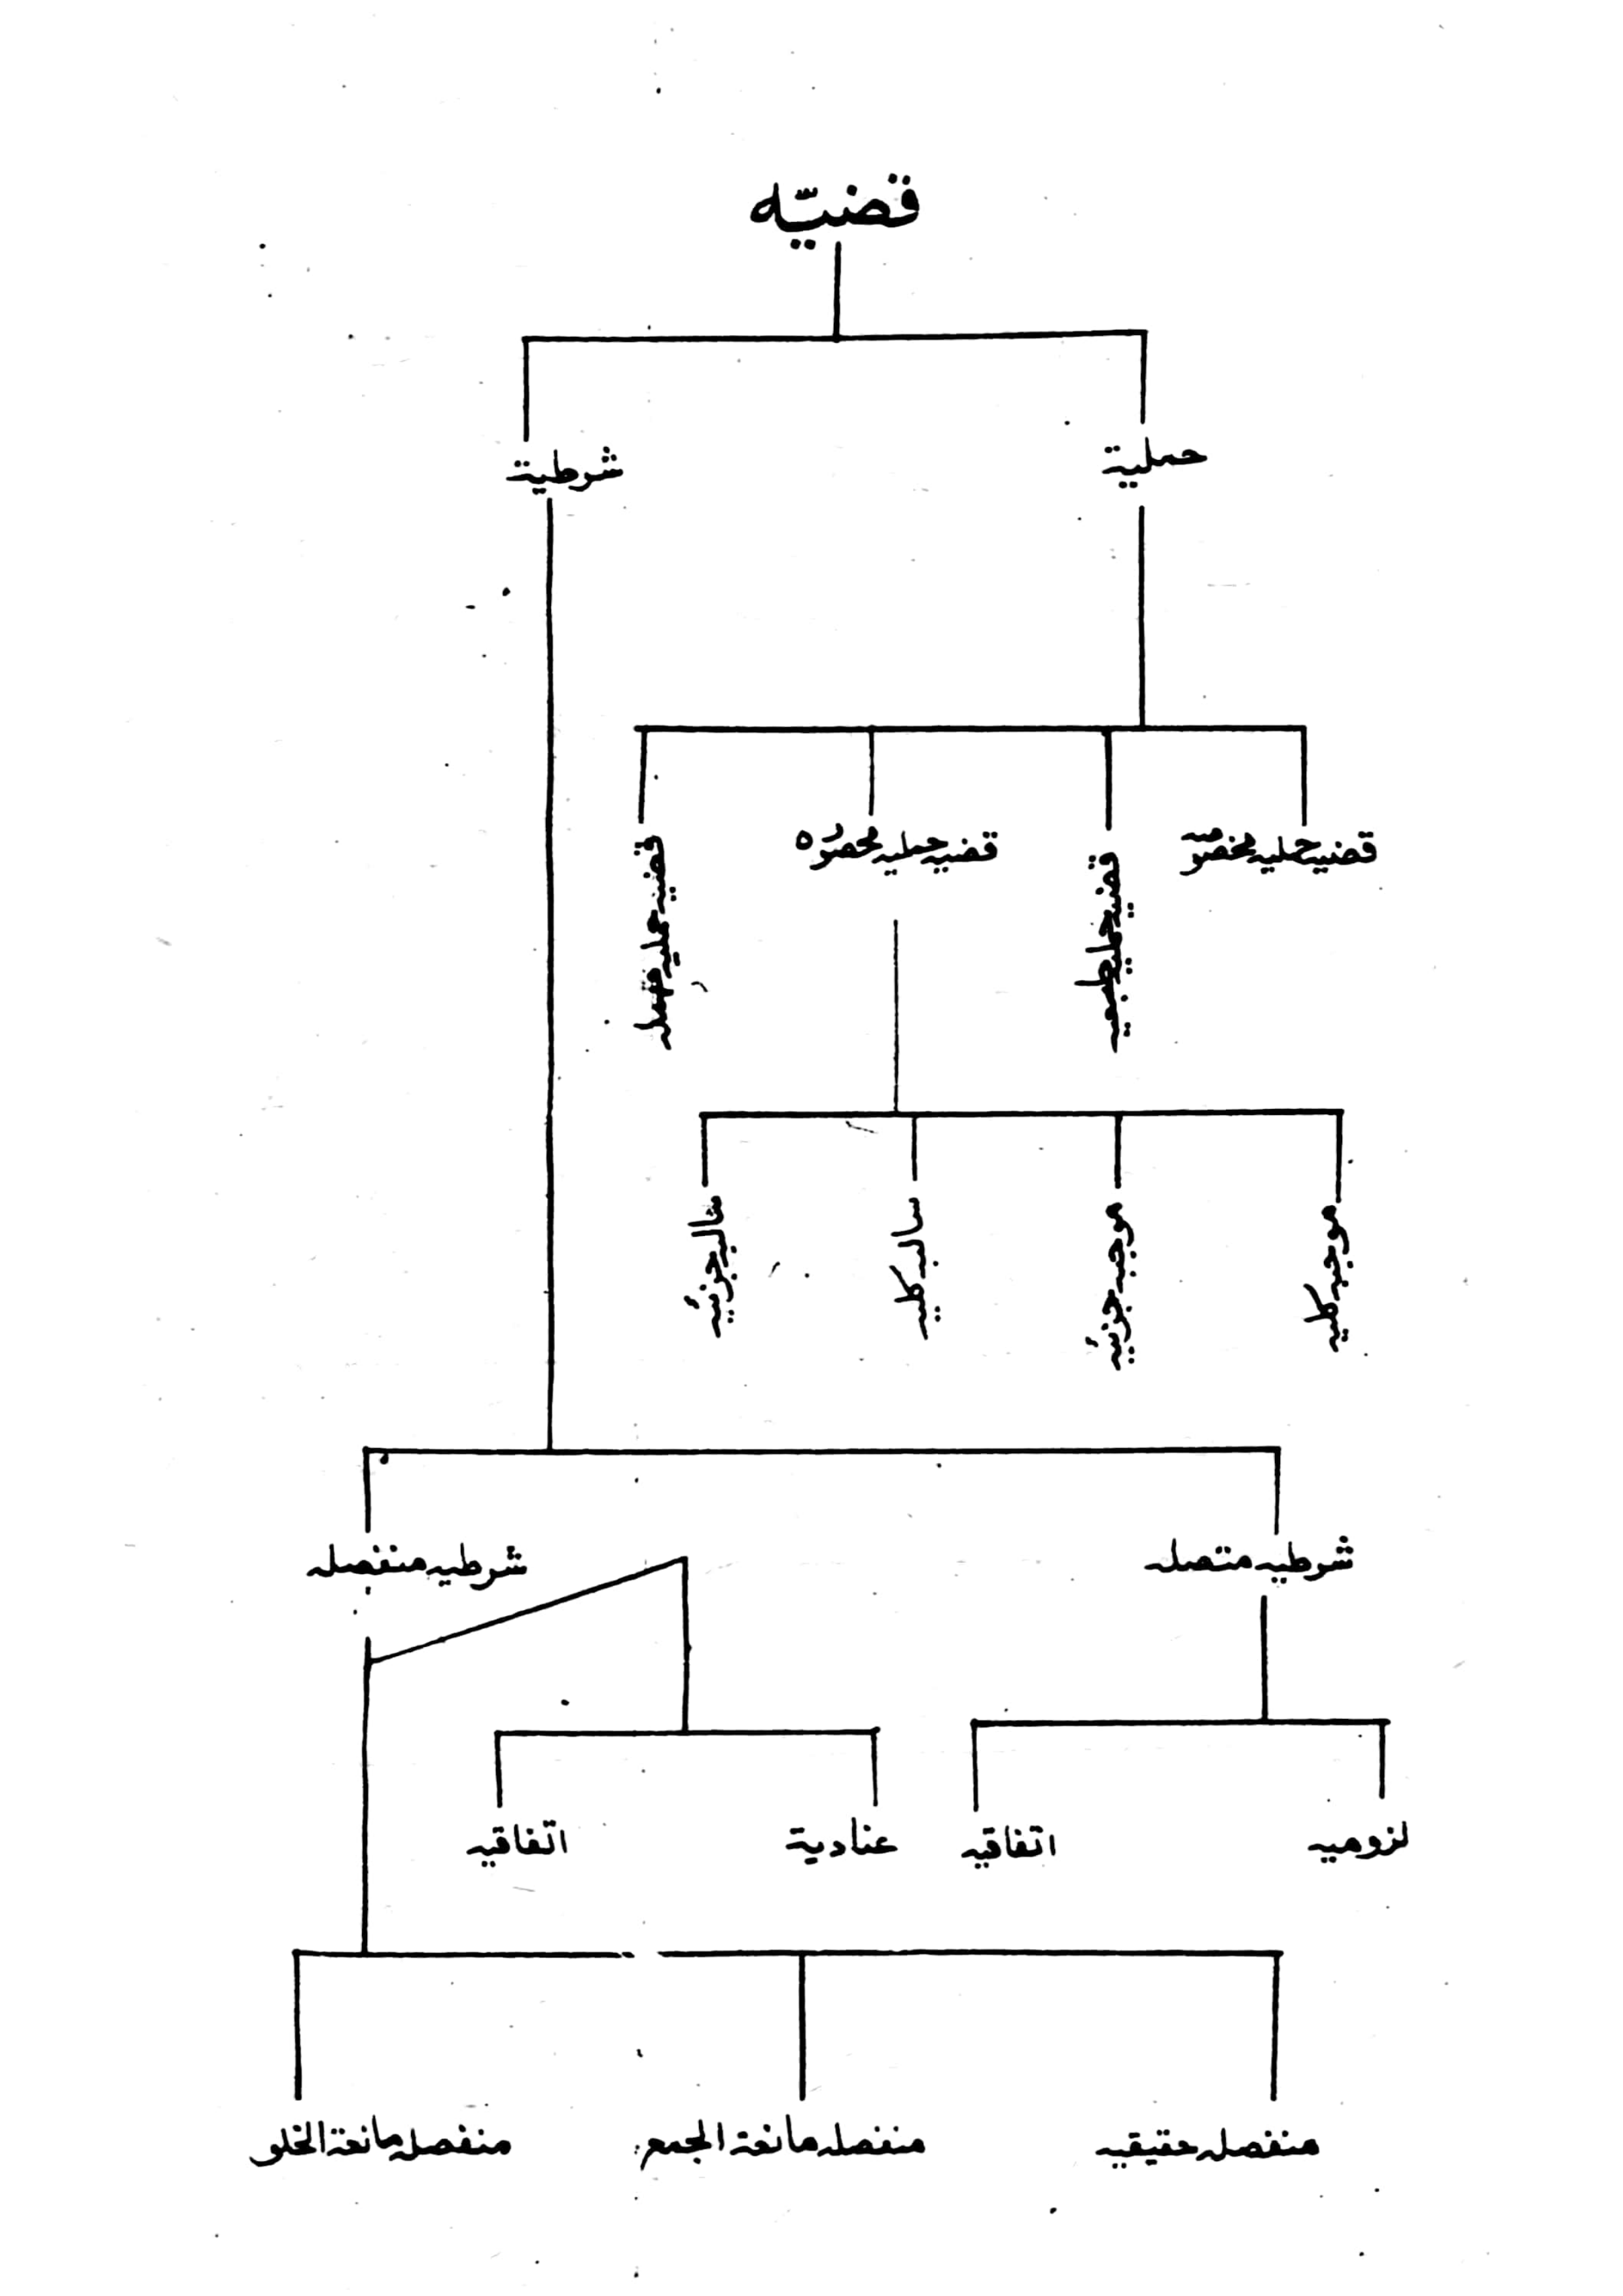 قضيّه
حملية
شرطية
قضيه حمليه مخصوصه
قضيه حمليه طبعيه
قضيه حمليه محصوره
قضيه حمليه مهمله
موجبه كليه
موجبه جزئيه
سالبه كليه
سالبه جزئيه
شرطيه متصله
شرطيه منفصله
لزوميه
اتفاقيه
عنادية
اتفاقيه
منفصله حقيقيه
منفصله مانعة الجمع
منفصله مانعة الخلو